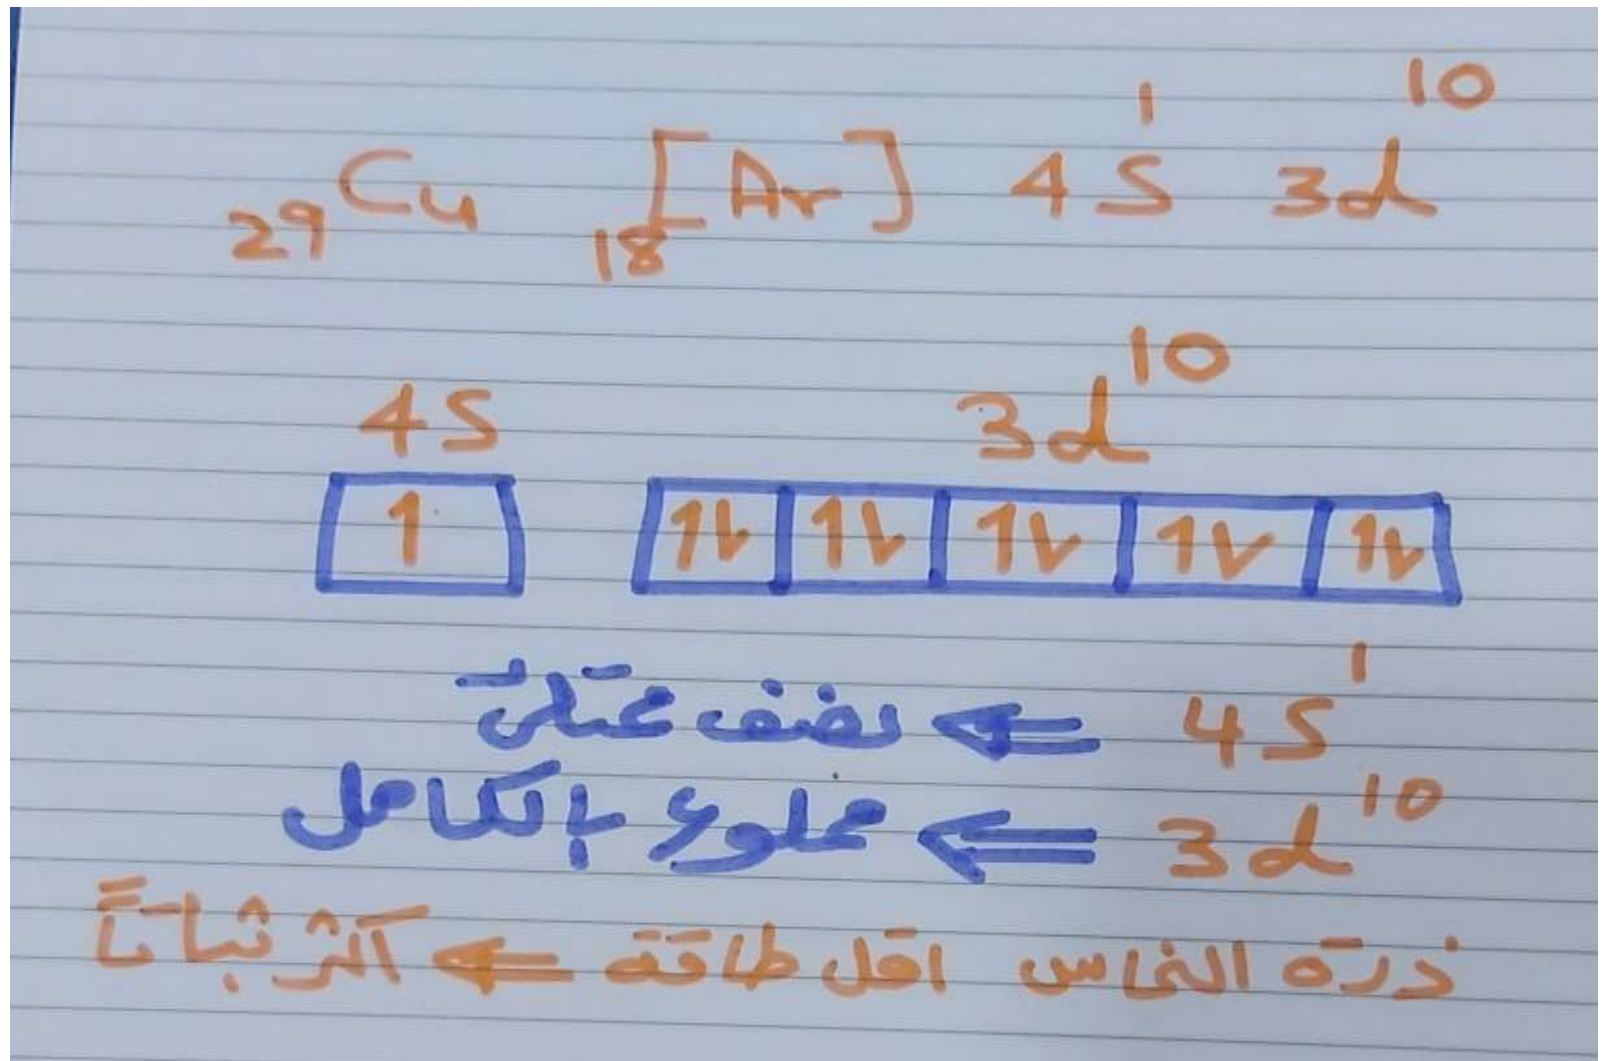 ₂₉Cu ₁₈[Ar] 4S¹ 3d¹⁰
4S 3d¹⁰
1 1L 1L 1L 1L 1L
4S¹ ⇐ نصف ممتلئ
3d¹⁰ ⇐ مملوء بالكامل
ذرة النحاس اقل طاقة ⇐ أكثر ثباتاً